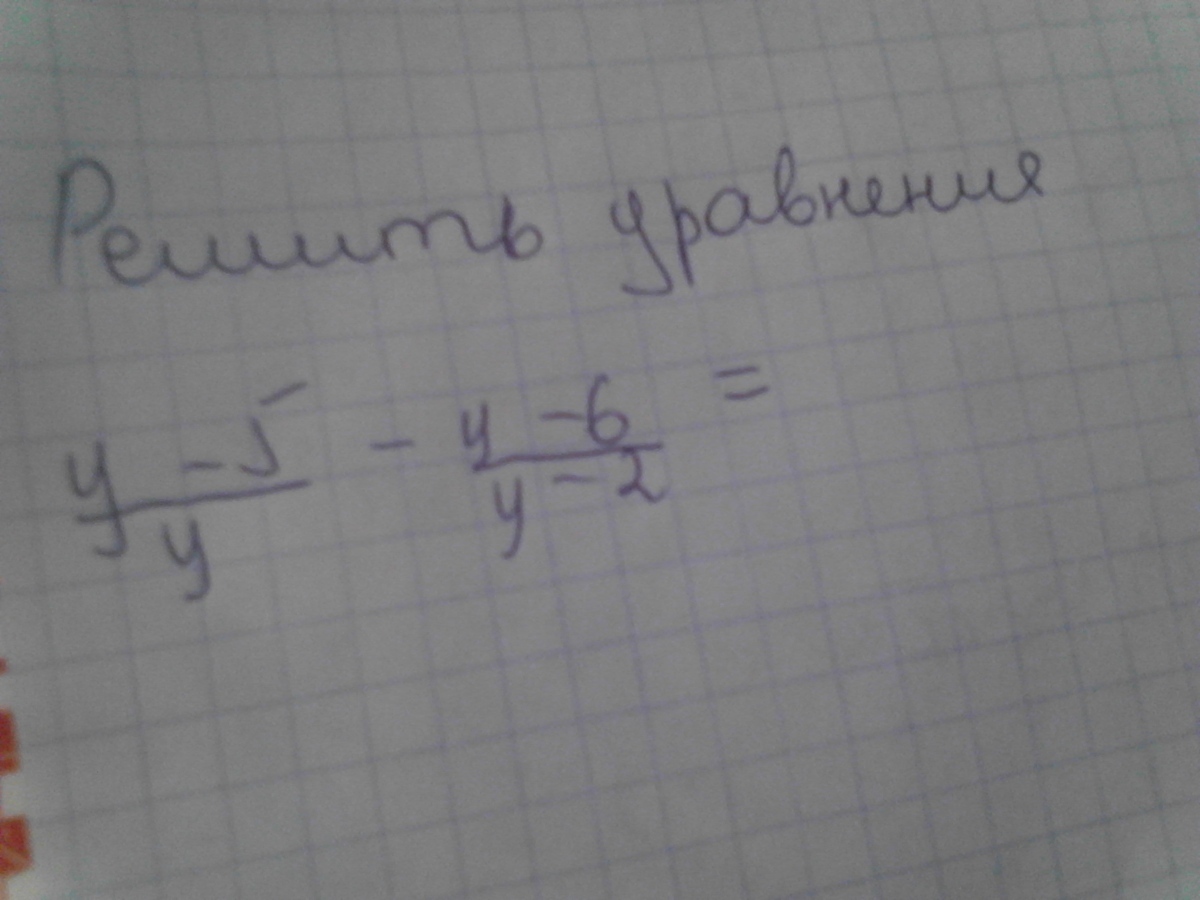 Решить уравнения
y - 5 / y - y - 6 / y - 2 =